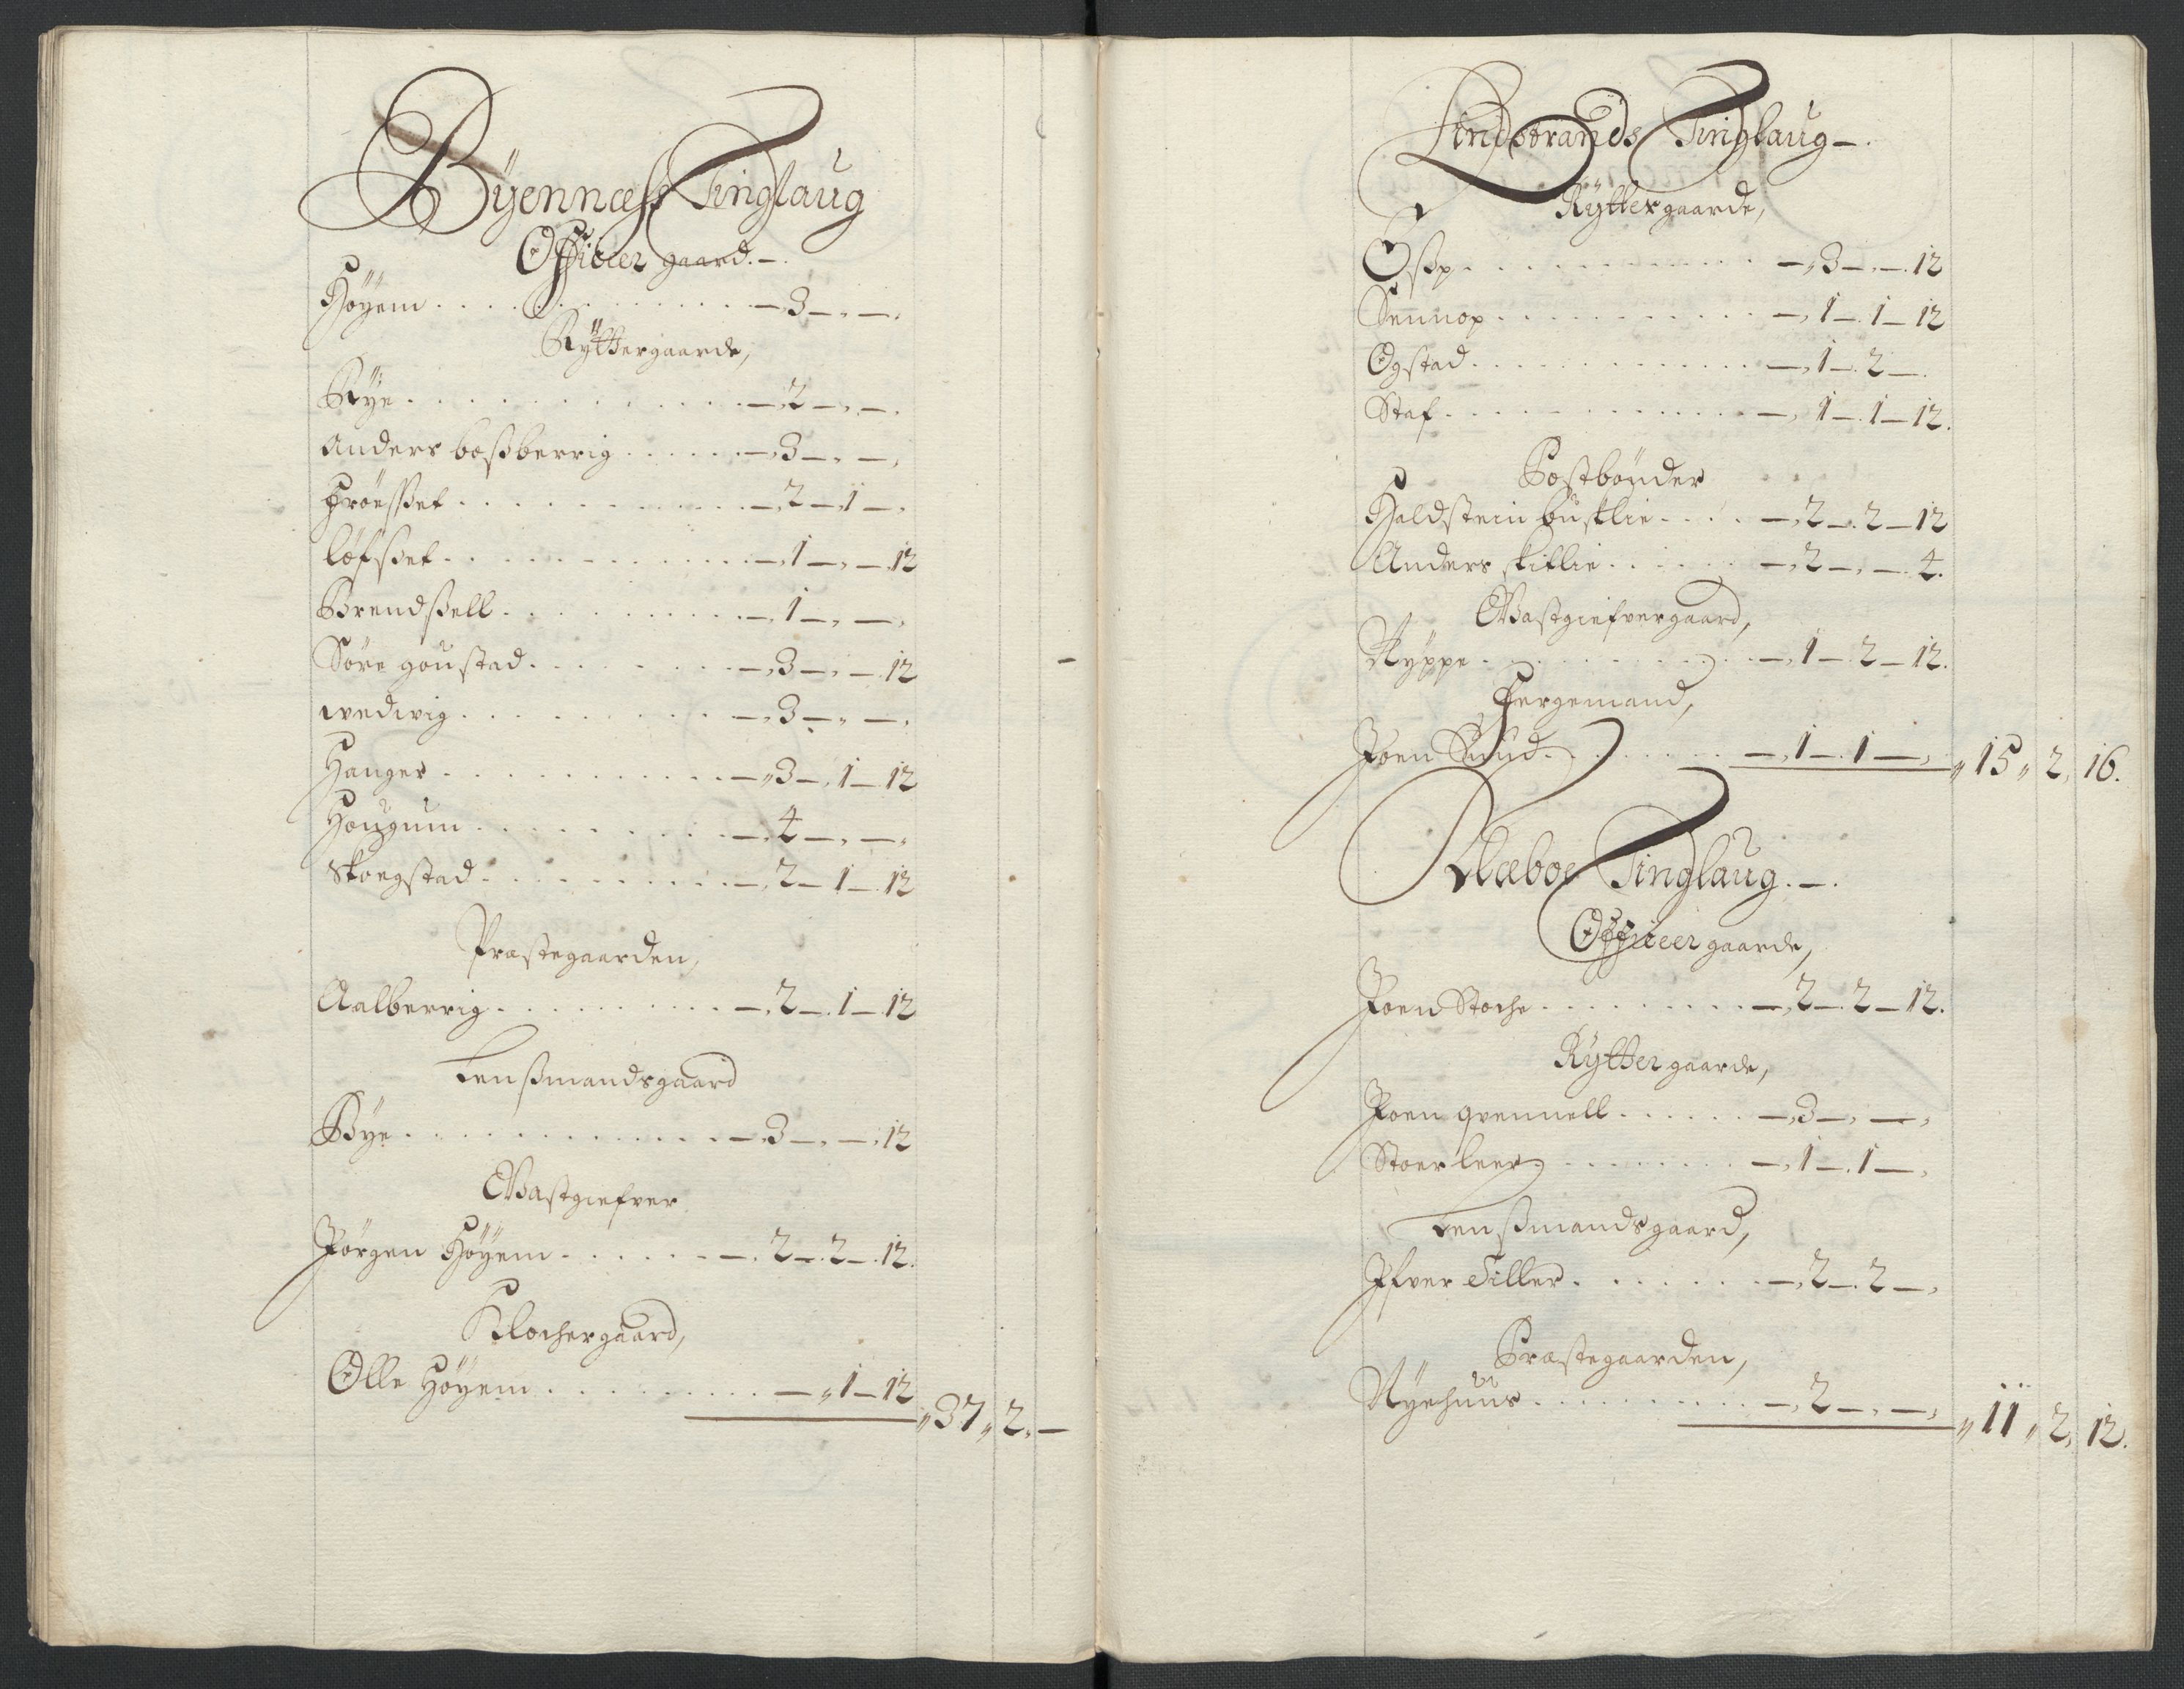 Byennæss Tinglaug
Officeer gaard. –.
Höÿem . . . . . – 3 – „ – .
Rÿttergaarde,
Rÿe . . . . . – 2 – „ – .
Anders boßberrig . . . . . – 3 – „ – ,
Fröesset . . . . . – 2 – 1 – .
löfsset . . . . . – 1 – „ – 12
Brendßell . . . . . – 1 – „ – ,
Söre goustad . . . . . – 3 – „ – 12
wedwig . . . . . – 3 – „ – ,
Hanger . . . . . – „ 3 – 1 – 12
Hougum . . . . . – 4 – „ – ,
Skoegstad . . . . . – 2 – 1 – 12
Præstegaarden,
Aalberrig . . . . . – 2 – 1 – 12
Lenßmandsgaard
Bÿe . . . . . – 3 – „ – 12
Giæstgiefver
Jörgen Höÿem . . . . . – 2 – 2 – 12.
Klochergaard,
Olle Höÿem . . . . . – „ 1 – 12
„ 37 „ 2. –
Lindstrands Tinglaug –.
Rÿttergaarde,
Øssp . . . . . – „ 3 – „ – 12
Sennop . . . . . – 1 – 1 – 12
Ogstad . . . . . – 1 – 2 – .
Staf . . . . . – 1 – 1 – 12.
Postbönder
Haldstein buschlie . . . . – 2 – 2 – 12
Anders kitlie . . . . . – 2 – „ – 4.
Giæstgiefvergaard,
Rÿppe . . . . . – 1 – 2 – 12.
Fergemand,
Joen Suud . . . . . – 1 – 1 – ,
„ 15 „ 2, 16.
Klæboe Tinglaug. –.
Officeer gaarde,
Joen Stoche . . . . . – 2 – 2 – 12.
Rÿtter gaarde,
Joen qvennell . . . . . – 3 – „ – ,
Stoer leer . . . . . – 1 – 1 – ,
Lenßmandsgaard,
Ifver Tiller . . . . . – 2 – 2 – ,
Præstegaarden,
Nÿehuus . . . . . – 2 – „ – ,
„ 11 „ 2, 12.